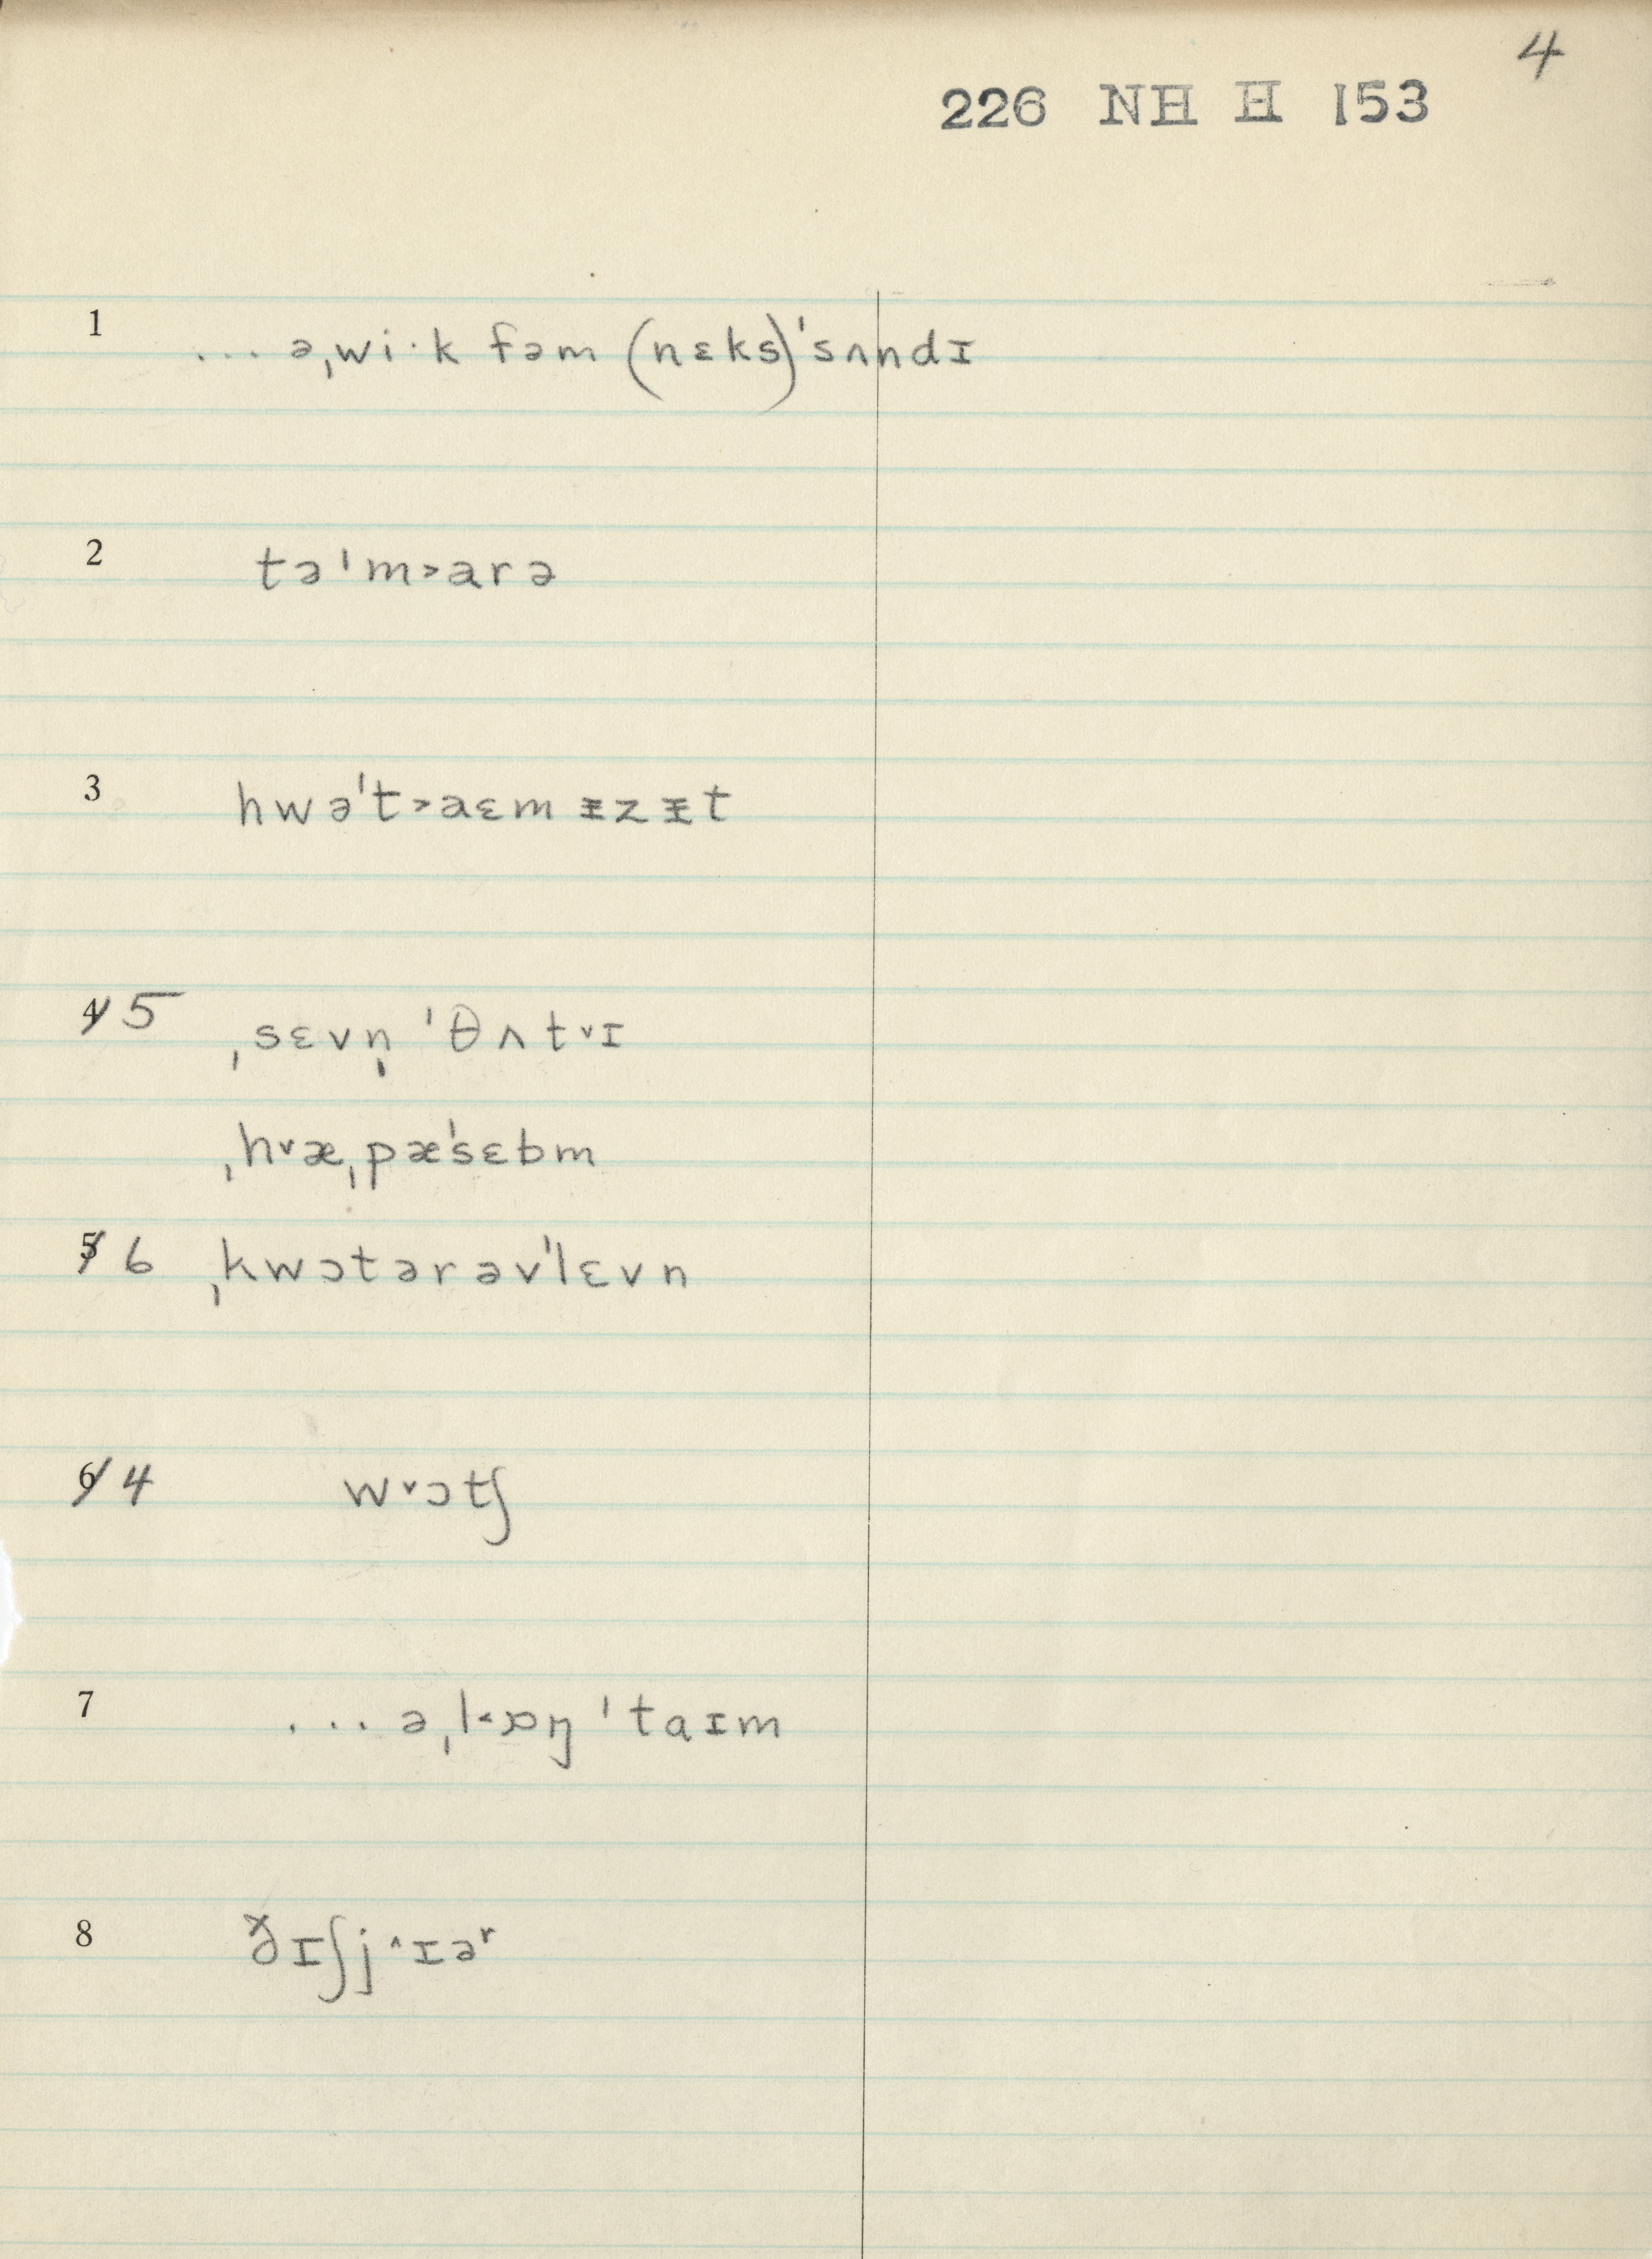 4
226 NH H 153
1 ... əˌwi·k fəm (nɛks)ˈsʌndɪ
2 təˈm˃arə
3 hwəˈt˃aɛm ᵻzᵻt
4 5 ˌsɛvn̩ ˈθʌt˅ɪ
ˌh˅æˌpæˈsɛbm
5 6 ˌkwɔtərəvˈlɛvn
6 4 w˅ɔtʃ
7 ... əˌl˂ɒŋ ˈtaɪm
8 ðɪʃj˄ɪəʳ